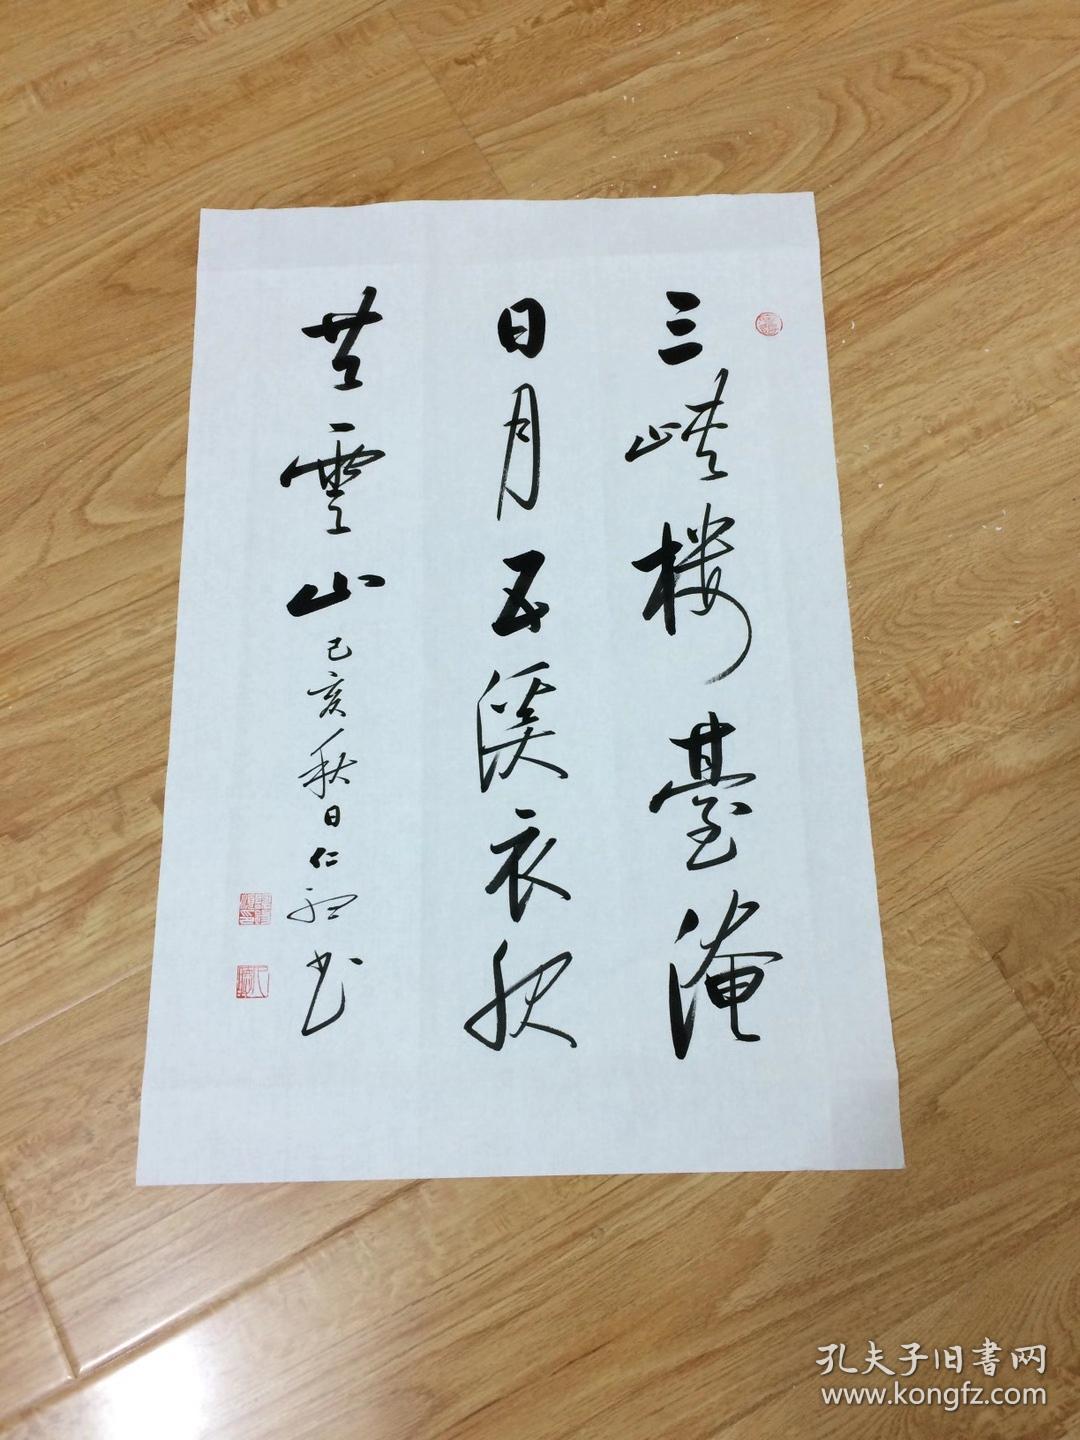 三峡楼臺淹
日月五溪衣服
共雲山
己亥秋日仁
书
孔夫子旧書网
www.kongfz.com